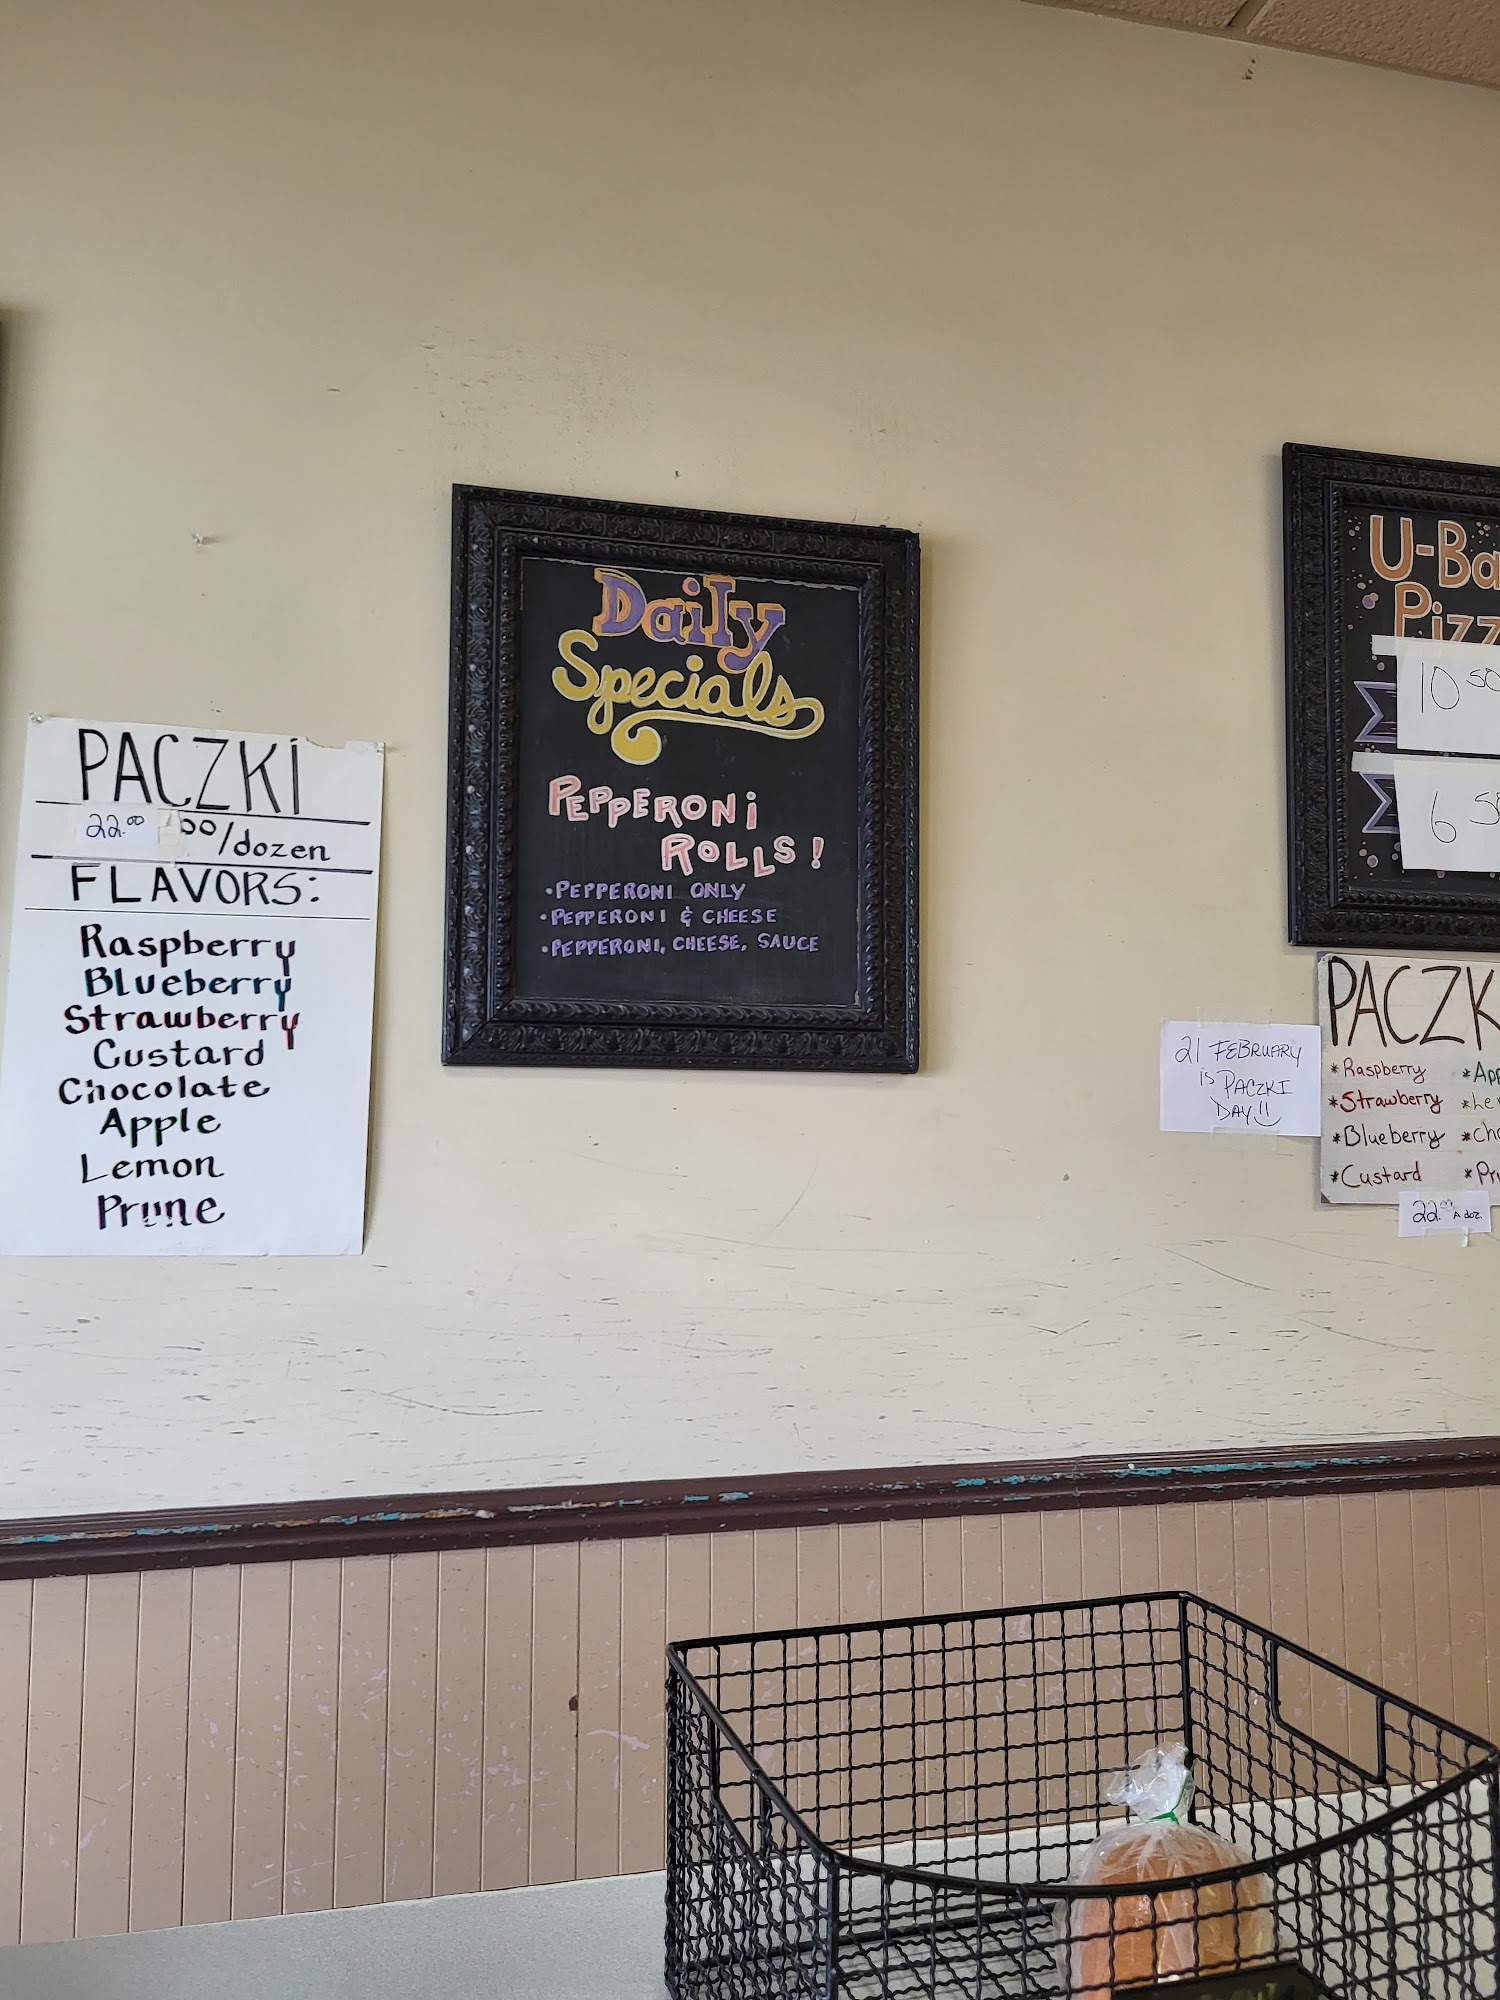 PACZKI
22.00 00/dozen
FLAVORS:
Raspberry
Blueberry
Strawberry
Custard
Chocolate
Apple
Lemon
Prune
Daily
Specials
PEPPERONI
ROLLS!
•PEPPERONI ONLY
•PEPPERONI & CHEESE
•PEPPERONI, CHEESE, SAUCE
U-Ba
Pizz
10 50
6 50
21 FEBRUARY
is PACZKI
DAY!!
PACZK
*Raspberry *App
*Strawberry *Le
*Blueberry *Cho
*Custard *Pru
22.00 A doz.